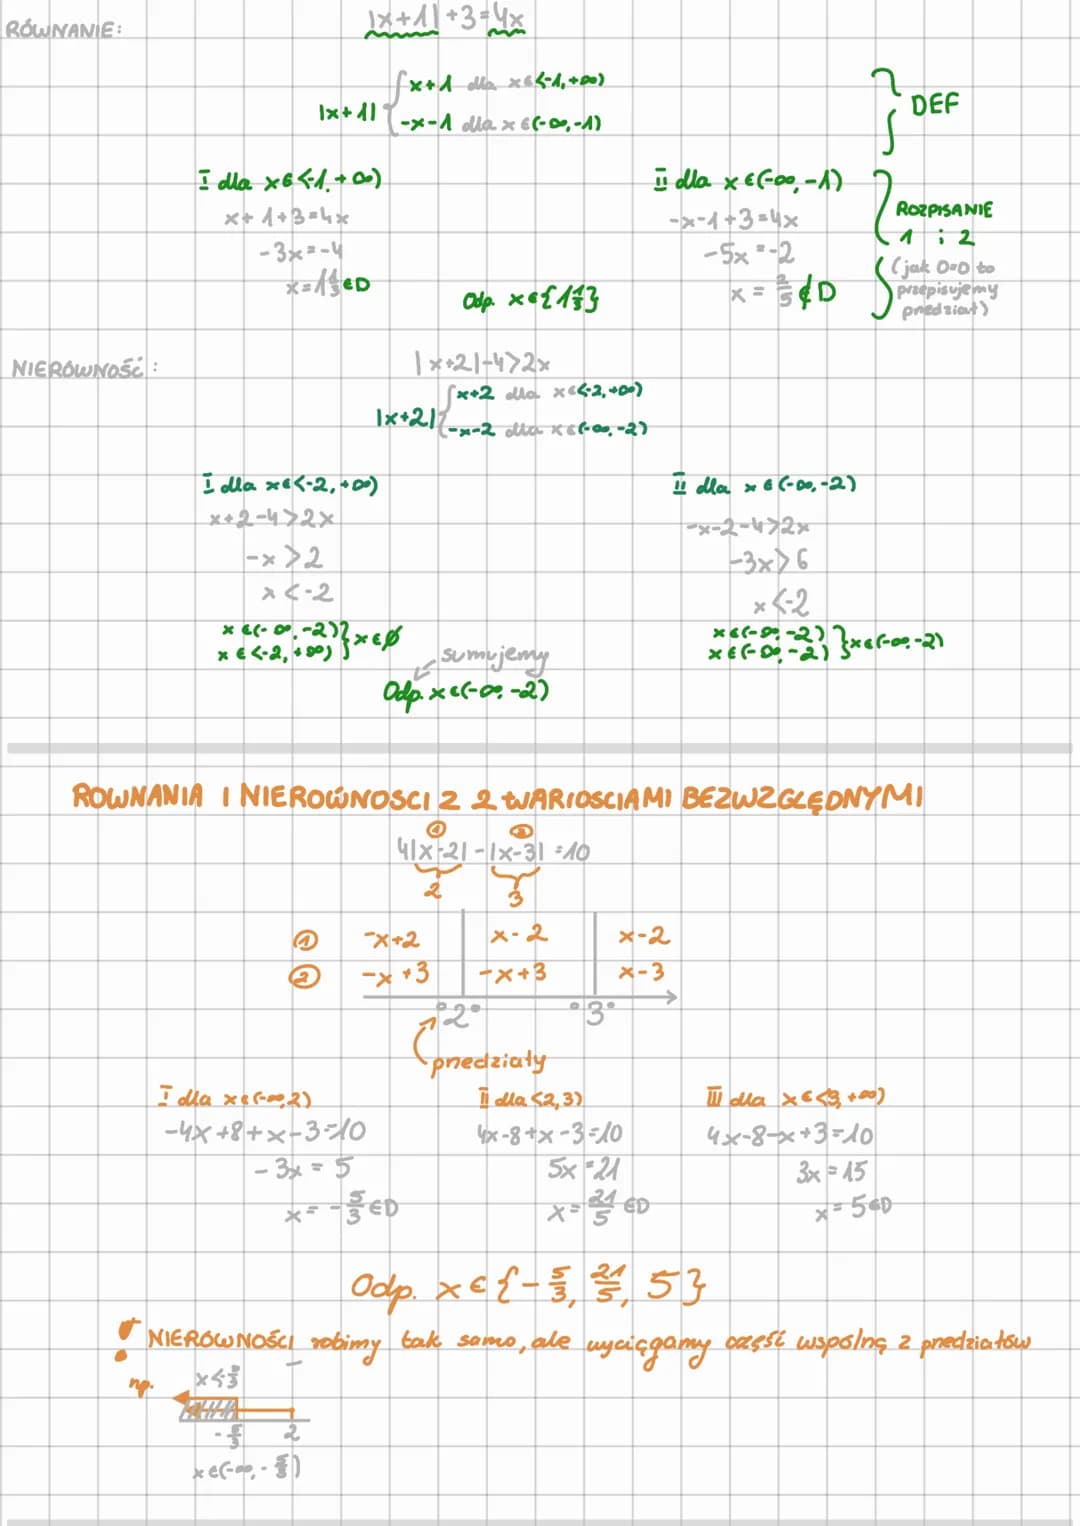 RÓWNANIE:
|x+1|+3=4x
|x+1| { x+1 dla x∈<-1,+∞)
-x-1 dla x∈(-∞,-1)
} DEF
I dla x∈<-1,+∞)
x+1+3=4x
-3x=-4
x=1⅓∈D
Odp. x∈{1⅓}
II dla x∈(-∞,-1)
-x-1+3=4x
-5x=-2
x=2/5∉D
ROZPISANIE
1 i 2
(jak 0=0 to
przepisujemy
przedział)
NIERÓWNOŚĆ:
|x+2|-4>2x
|x+2| { x+2 dla x∈<-2,+∞)
-x-2 dla x∈(-∞,-2)
I dla x∈<-2,+∞)
x+2-4>2x
-x>2
x<-2
x∈(-∞,-2)
x∈<-2,+∞) } x∈∅
II dla x∈(-∞,-2)
-x-2-4>2x
-3x>6
x<-2
x∈(-∞,-2)
x∈(-∞,-2) } x∈(-∞,-2)
sumujemy
Odp. x∈(-∞,-2)
ROWNANIA I NIERÓWNOSCI Z 2 WARIOSCIAMI BEZWZGLĘDNYMI
① ②
4|x-2|-|x-3|=10
2 3
① -x+2 x-2 x-2
② -x+3 -x+3 x-3
2 3
przedziały
I dla x∈(-∞,2)
-4x+8+x-3=10
-3x=5
x=-5/3∈D
II dla <2,3)
4x-8+x-3=10
5x=21
x=21/5∈D
III dla x∈<3,+∞)
4x-8-x+3=10
3x=15
x=5∈D
Odp. x∈{-5/3, 21/5, 5}
! NIERÓWNOŚCI robimy tak samo, ale wyciągamy część wspólną z przedziałów
np. x<-5/3
-5/3 2
x∈(-∞,-5/3)